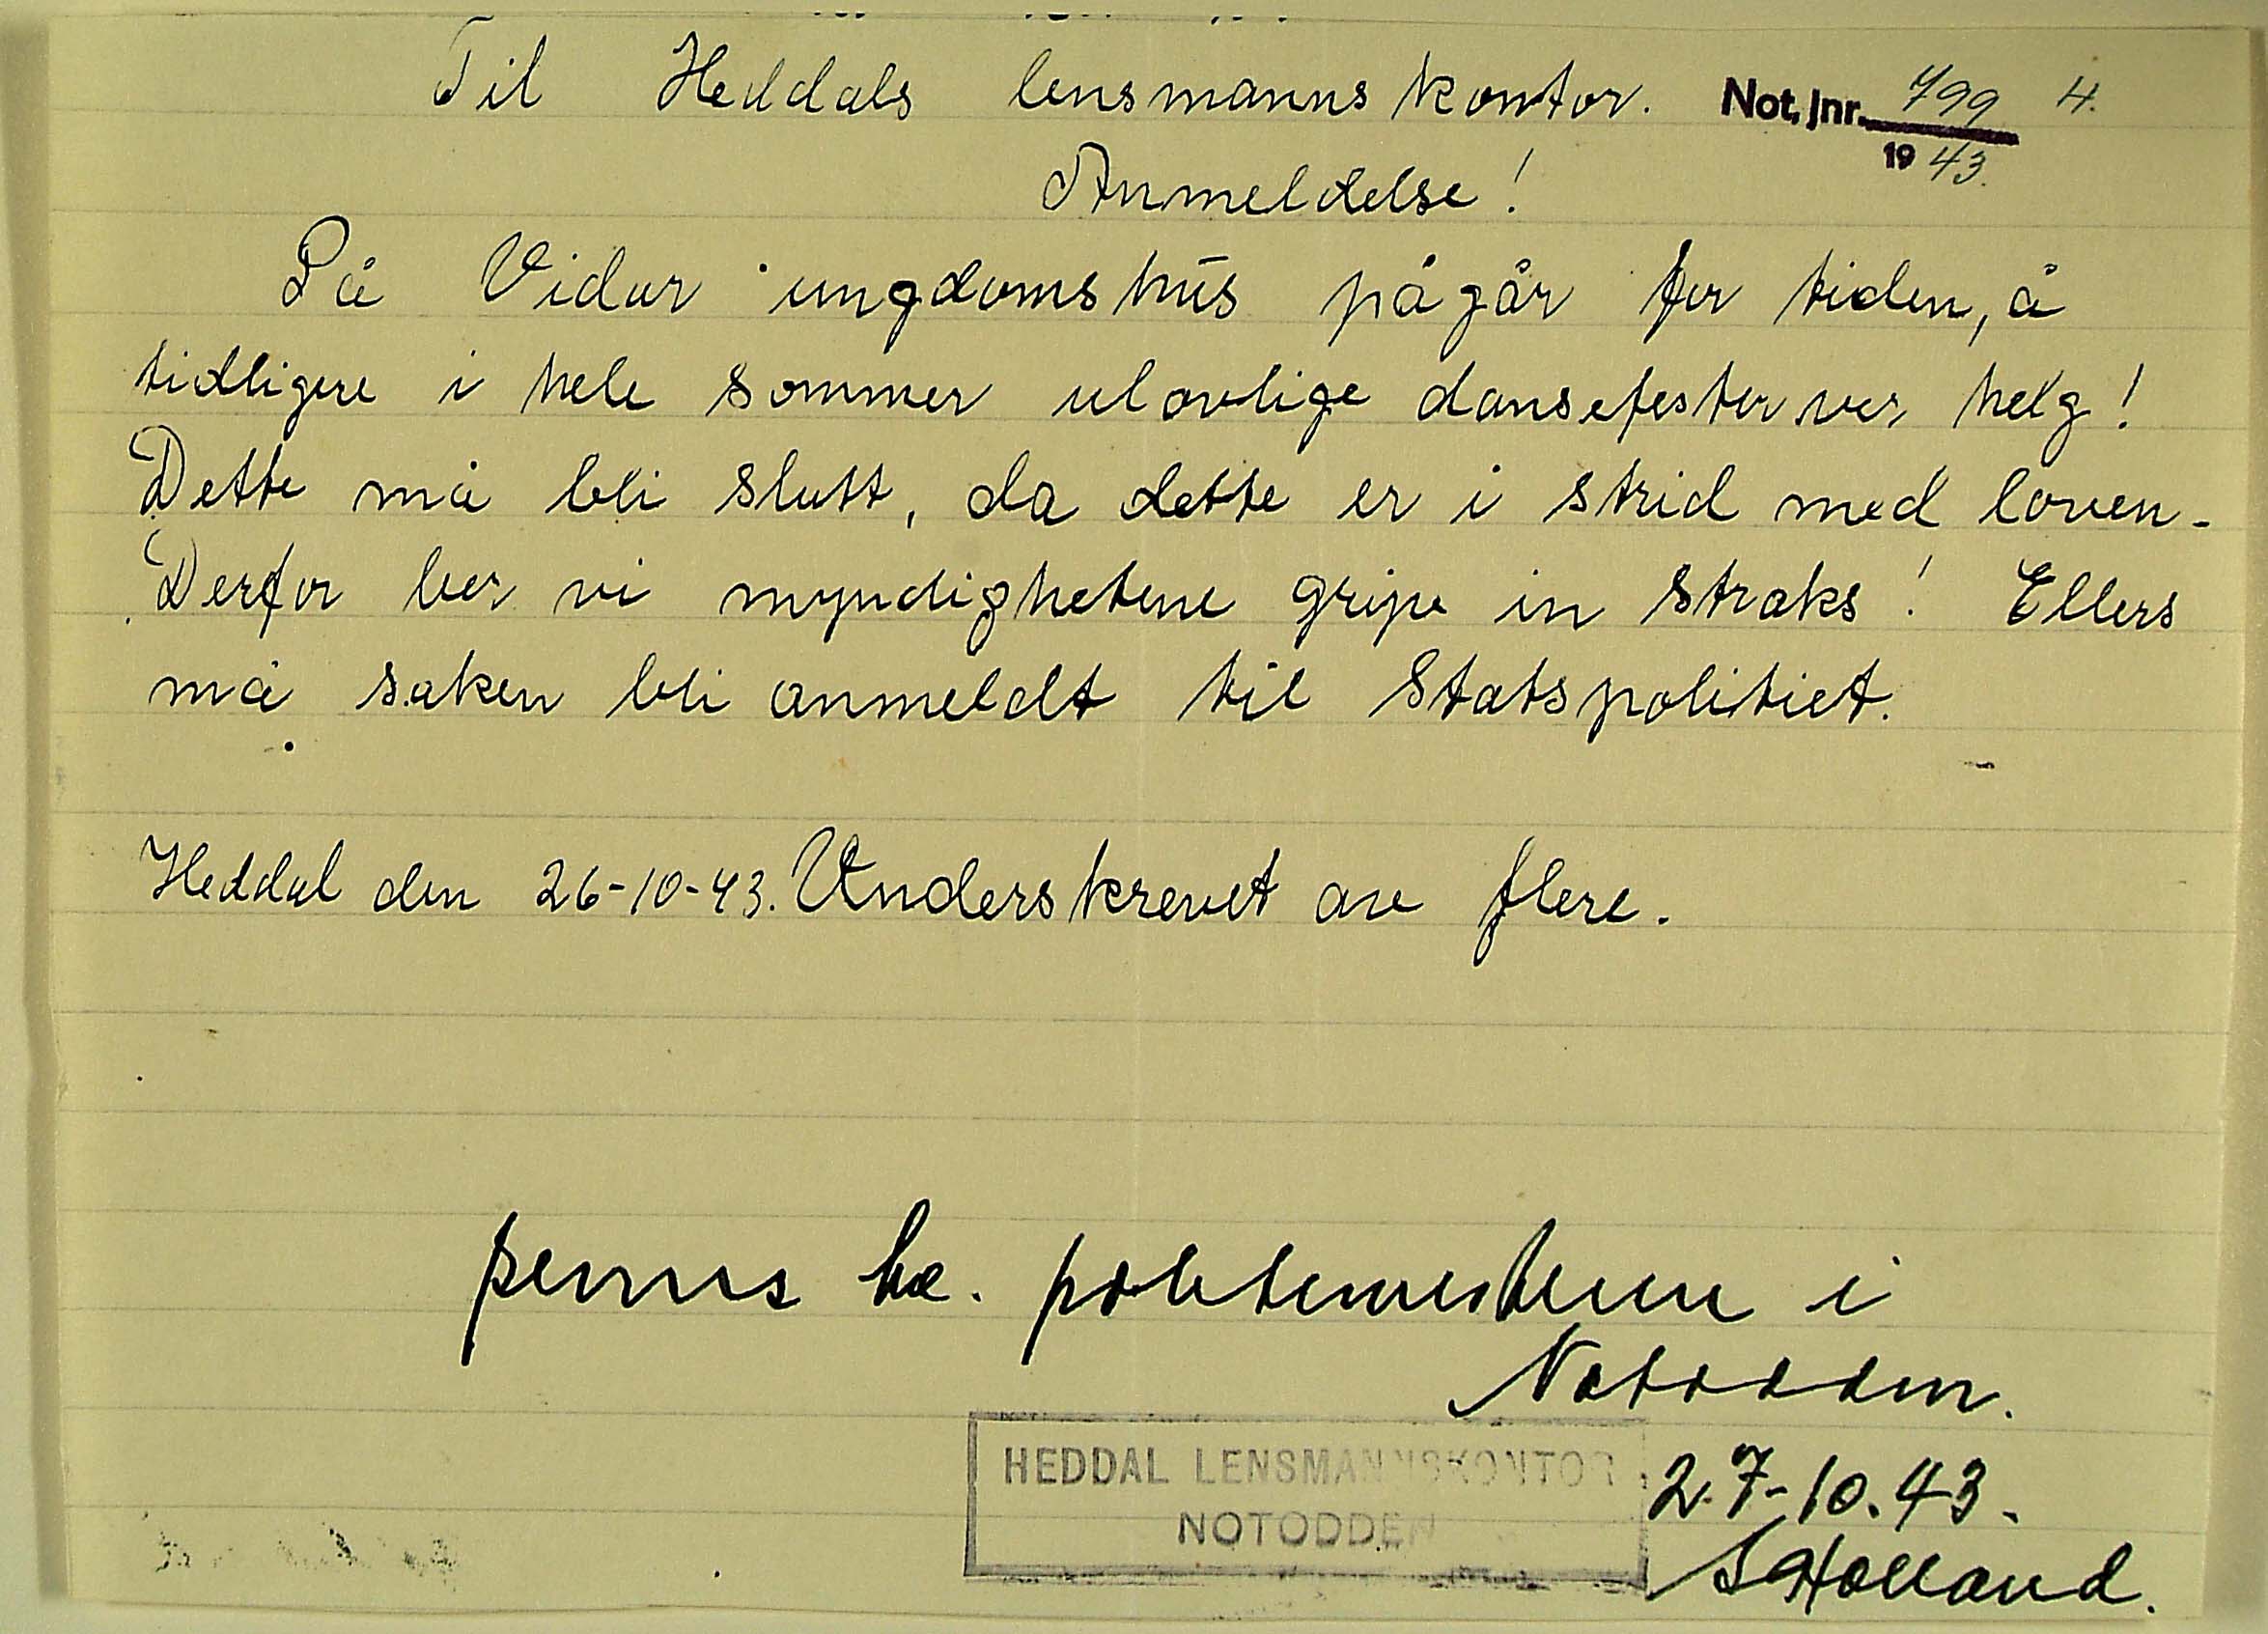 Til Heddals lensmannskontor. Not. Jnr. 799 H.
19 43.
Anmeldelse!
På Vidar ungdomshus pågår for tiden, å
tidligere i hele sommer ulovlige dansefester ver helg!
Dette må bli slutt, da dette er i strid med loven-
Derfor ber vi myndighetene gripe in straks! Ellers
må saken bli anmeldt til Statspolitiet.
Heddal den 26-10-43. Underskrevet av flere.
politimesteren i
Notodden.
HEDDAL LENSMANNSKONTOR
NOTODDEN
27-10.43.
Holland.